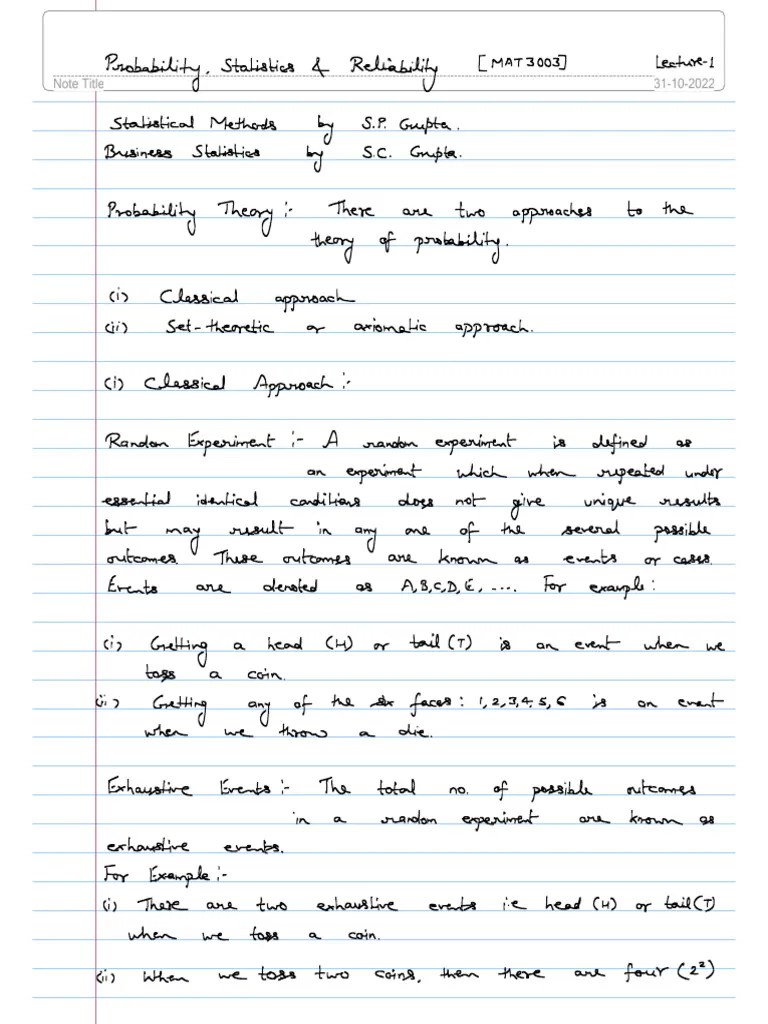 Probability, Statistics & Reliability [MAT3003] Lecture-1
Note Title 31-10-2022
Statistical Methods by S.P. Gupta.
Business Statistics by S.C. Gupta.
Probability Theory :- There are two approaches to the
theory of probability.
(i) Classical approach
(ii) Set-theoretic or axiomatic approach.
(i) Classical Approach :-
Random Experiment :- A random experiment is defined as
an experiment which when repeated under
essential identical conditions does not give unique results
but may result in any one of the several possible
outcomes. These outcomes are known as events or cases.
Events are denoted as A,B,C,D,E, .... For example:
(i) Getting a head (H) or tail (T) is an event when we
toss a coin.
(ii) Getting any of the six faces: 1,2,3,4,5,6 is an event
when we throw a die.
Exhaustive Events :- The total no. of possible outcomes
in a random experiment are known as
exhaustive events.
For Example :-
(i) There are two exhaustive events i.e head (H) or tail(T)
when we toss a coin.
(ii) When we toss two coins, then there are four (2²)